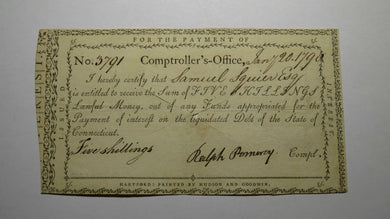 FOR THE PAYMENT OF
No. 3791 Comptroller's-Office, Jan'y 20. 1790
I hereby certify that Samuel Squier Esqr
is entitled to receive the Sum of FIVE SHILLINGS
Lawful Money, out of any Funds appropriated for the
Payment of interest on the liquidated Debt of the State of
Connecticut.
Five shillings Ralph Pomeroy Compt.
HARTFORD: PRINTED BY HUDSON AND GOODWIN.
INTEREST
INTEREST